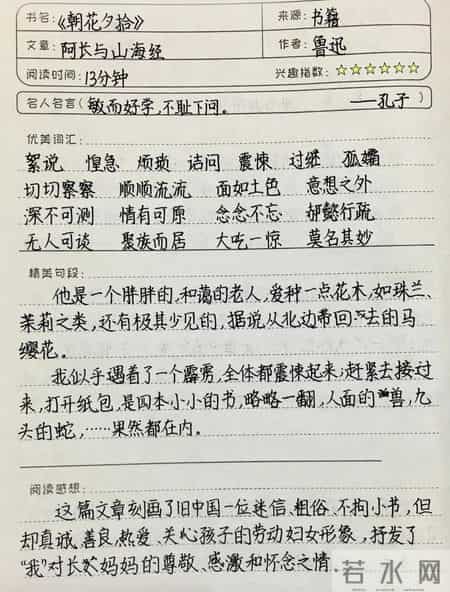 书名:《朝花夕拾》 来源:书籍
文章:阿长与山海经 作者:鲁迅
阅读时间:13分钟 兴趣指数:☆☆☆☆☆☆
名人名言(敏而好学,不耻下问。 ——孔子)
优美词汇:
絮说 惶急 烦琐 诘问 震悚 过继 孤孀
切切察察 顺顺流流 面如土色 意想之外
深不可测 情有可原 念念不忘 郝懿行疏
无人可谈 聚族而居 大吃一惊 莫名其妙
精美句段:
他是一个胖胖的,和蔼的老人,爱种一点花木,如珠兰、
茉莉之类,还有极其少见的,据说从北边带回去的马
缨花。
我似乎遇着了一个霹雳,全体都震悚起来;赶紧去接过
来,打开纸包,是四本小小的书,略略一翻,人面的兽,九
头的蛇,……果然都在内。
阅读感想:
这篇文章刻画了旧中国一位迷信、粗俗、不拘小节,但
却真诚、善良、热爱、关心孩子的劳动妇女形象,抒发了
"我"对长妈妈的尊敬、感激和怀念之情。
若水网